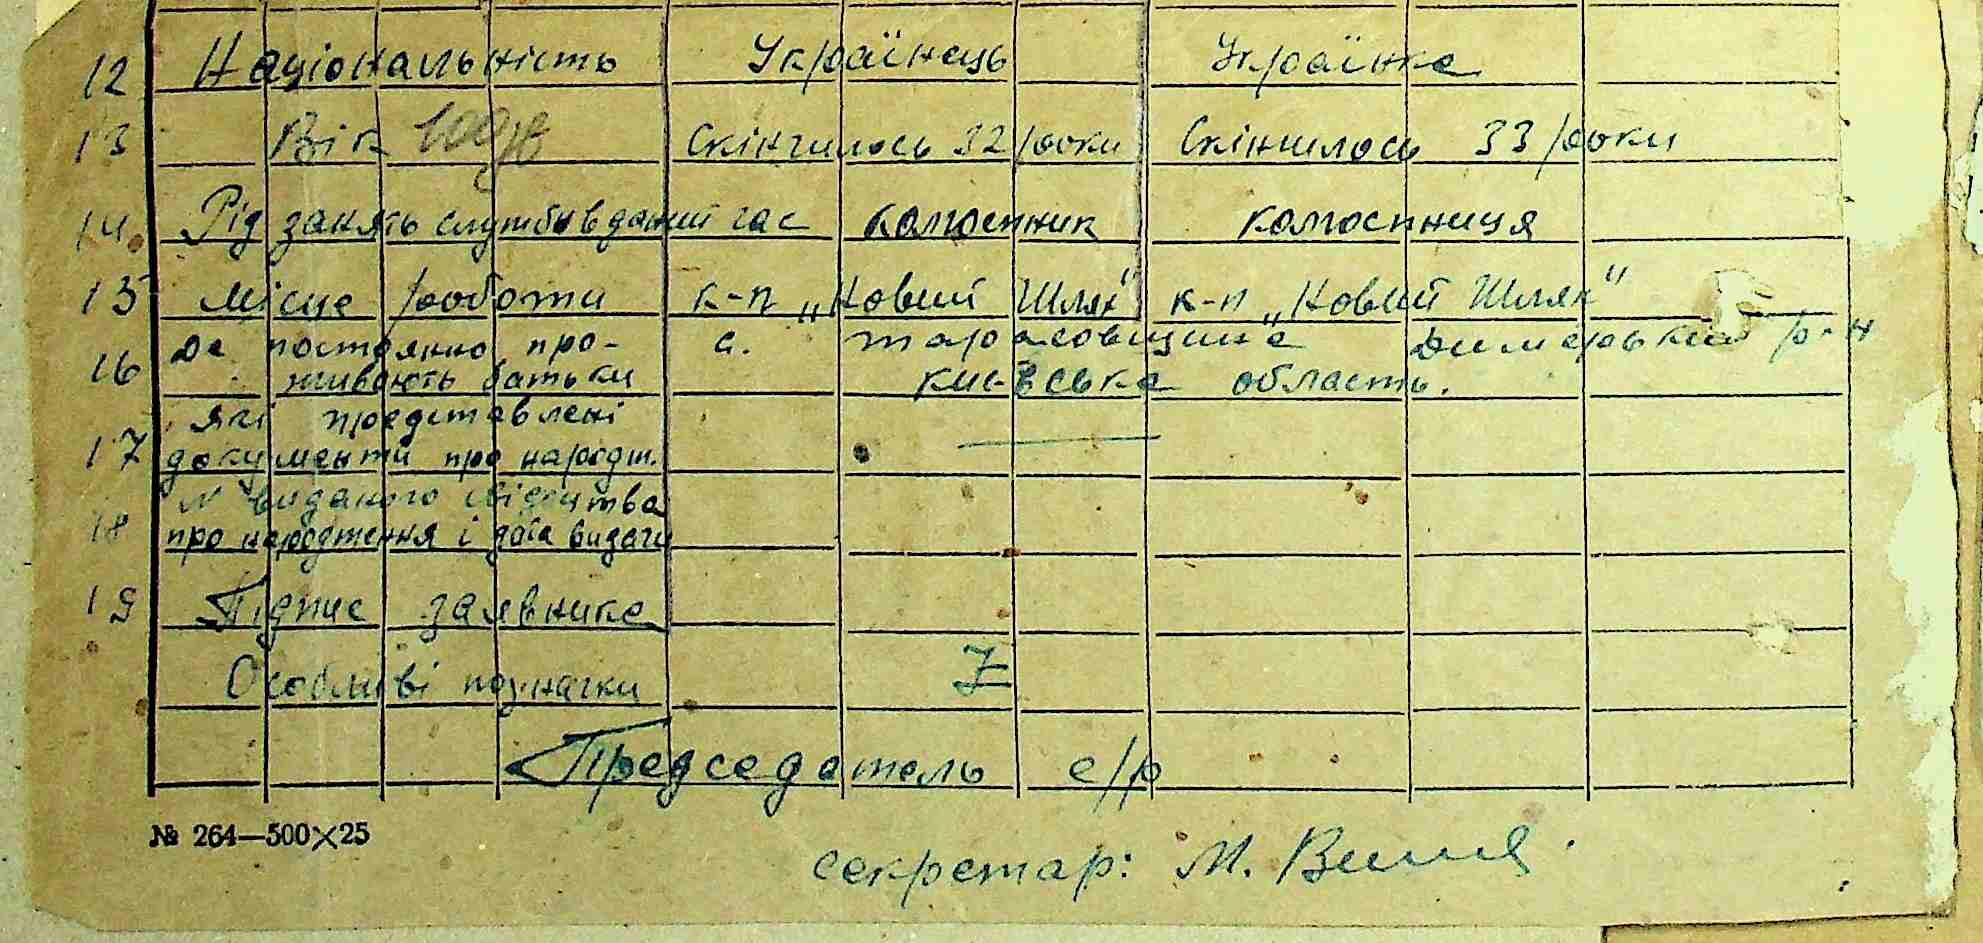 12 Національність Українець Українка
13 Вік Скінчилось 32 роки Скінчилось 33 роки
14 Рід занять служби в даний час колгоспник колгоспниця
15 Місце роботи к-п „Новий Шлях" к-п „Новий Шлях"
16 Де постоянно про- с. Тарасовщина Димерський р-н
живають батьки Київська область.
17 Які представлені
документи про народж.
18 № виданого свідоцтва
про народження і дата видачи
19 Підпис заявника
Особливі позначки Z
Председатель с/р
№ 264—500×25
секретар: М.